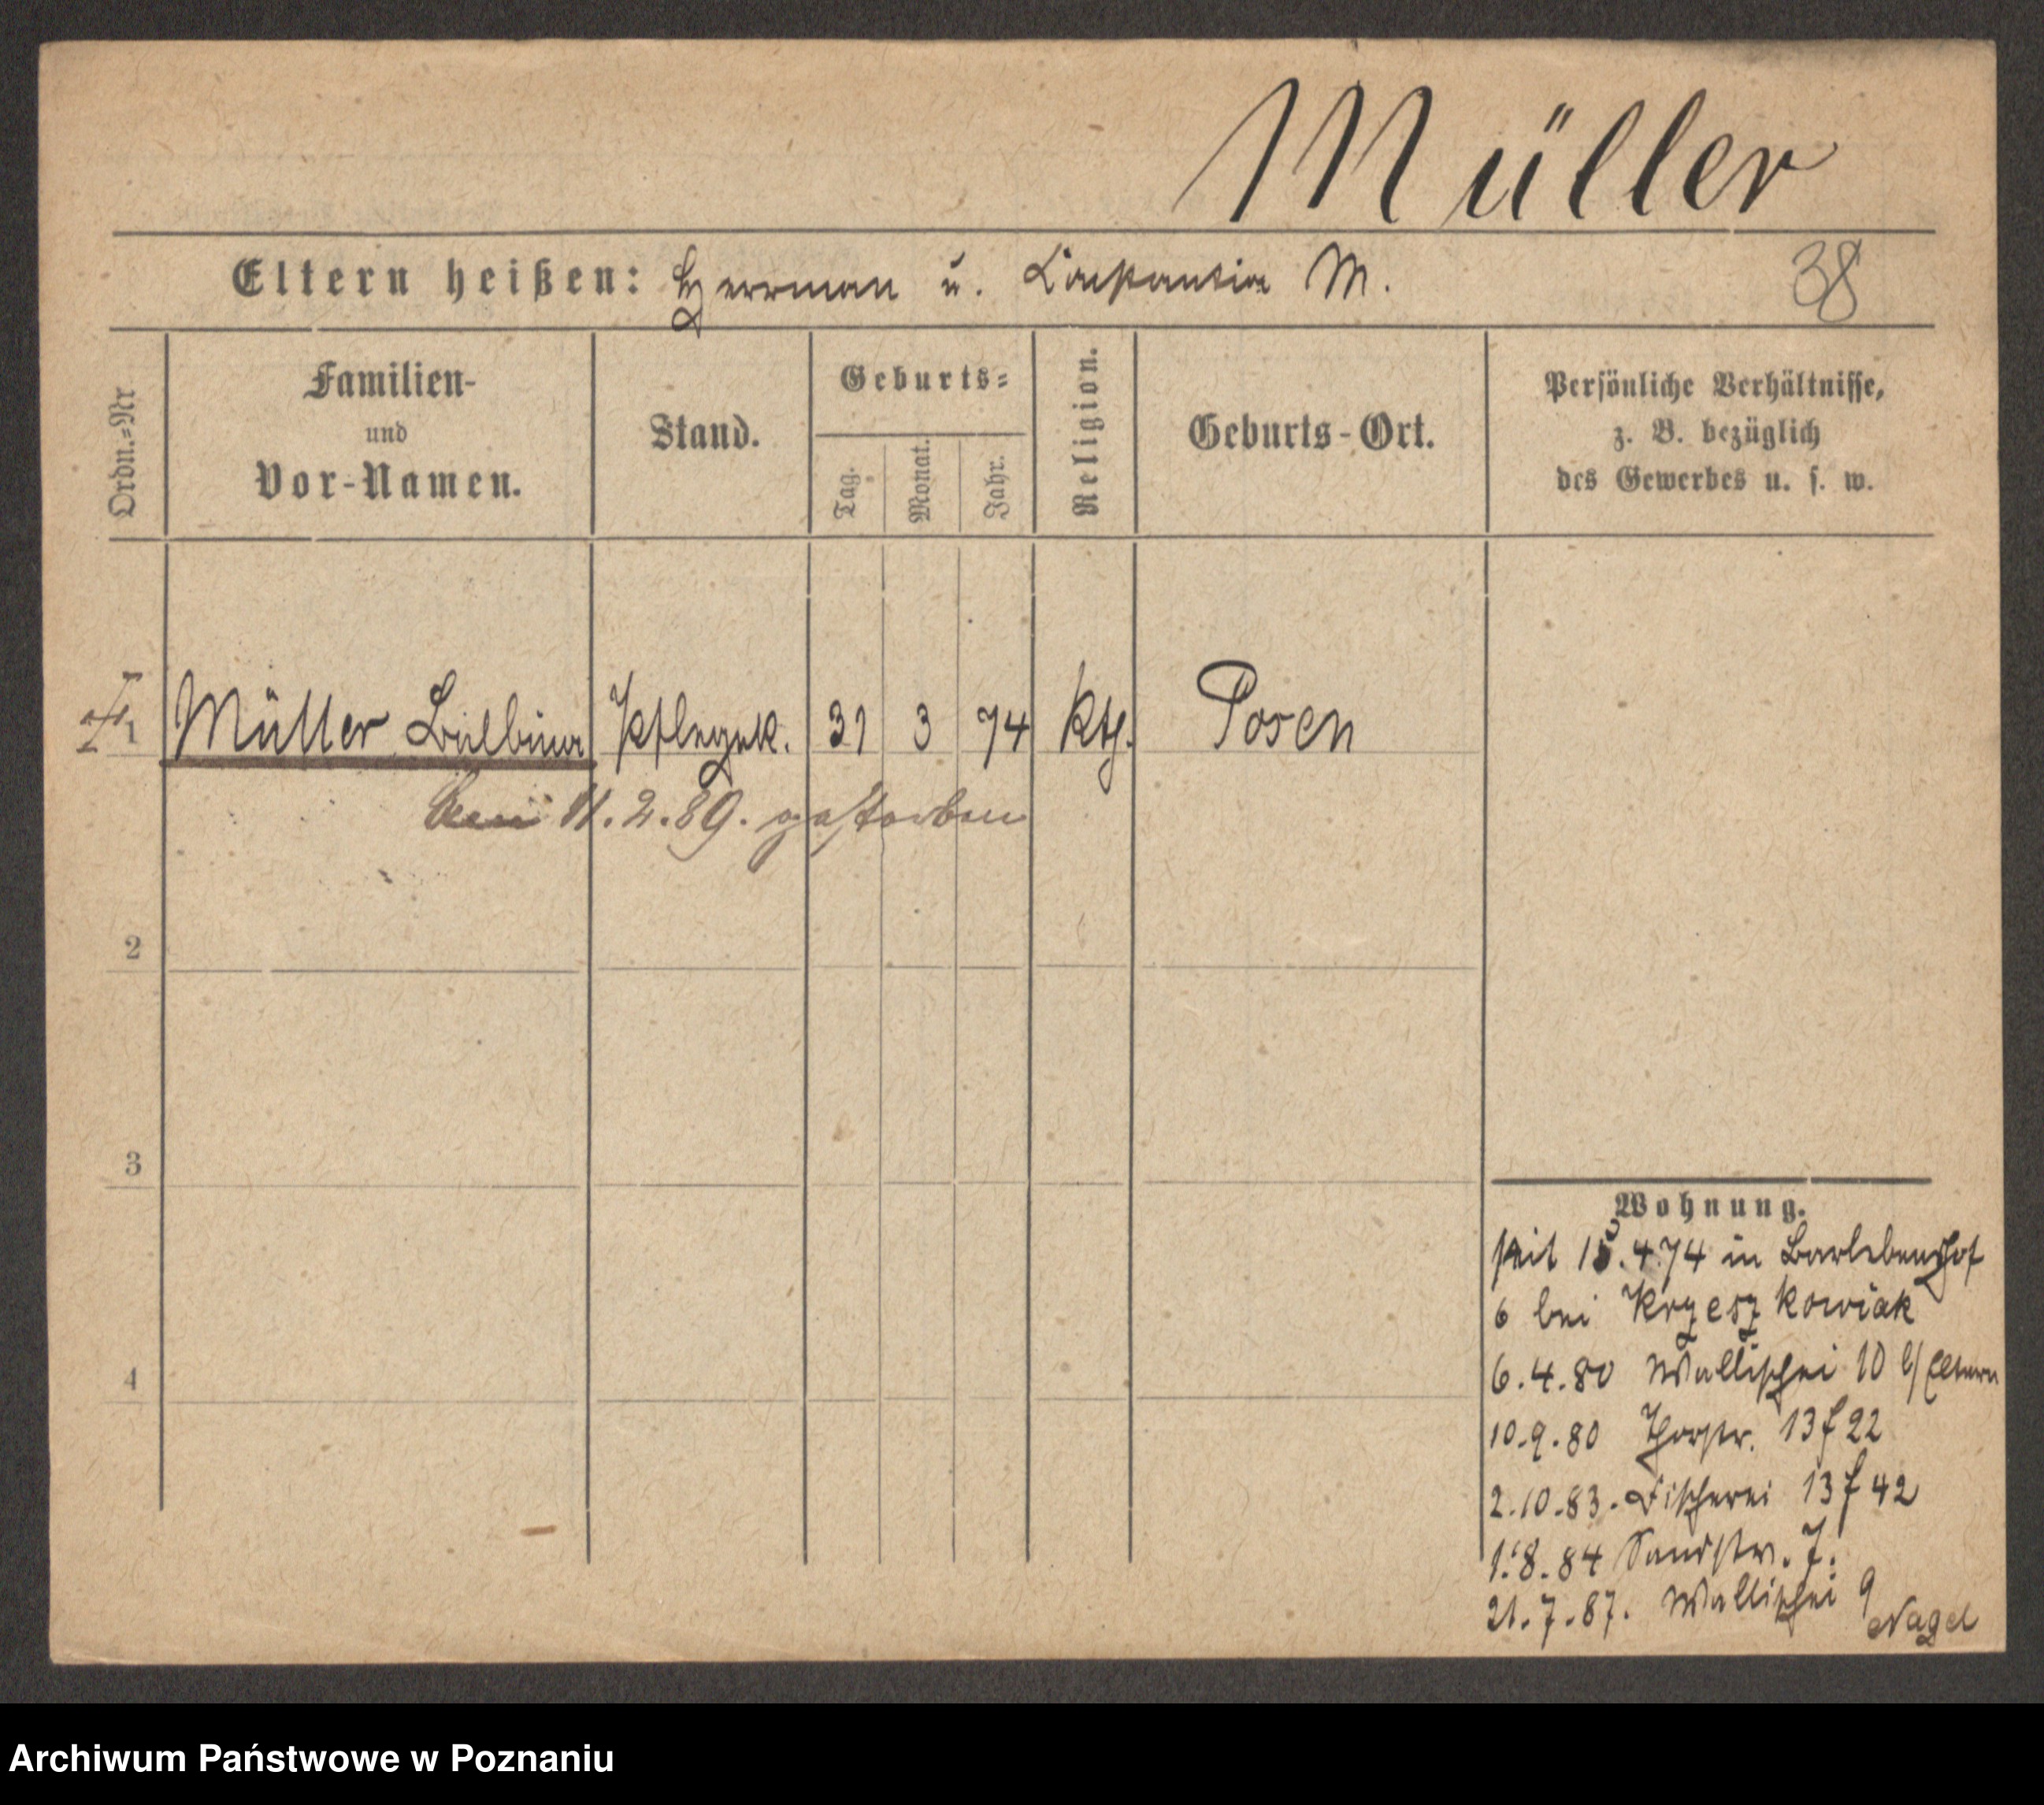 Müller
Eltern heißen: Herrman u. Constantia M.
38
Ordn.=Nr
Familien-
und
Vor-Namen.
Stand.
Geburts=
Tag.
Monat.
Jahr.
Religion.
Geburts-Ort.
Persönliche Verhältnisse,
z. B. bezüglich
des Gewerbes u. s. w.
1 Müller Balbina Pflegek. 31 3 74 Kth. Posen
11.2.89. gestorben
2
3
4
Wohnung.
seit 15.4.74 in Barlebenshof
6 bei Krzeszkowiak
6.4.80 Wallischei 10 b/Eltern
10.9.80 Thorstr. 13 f 22
2.10.83. Fischerei 13 f 42
1.8.84 Sandstr. 7.
21.7.87. Wallischei 9
Nagel
Archiwum Państwowe w Poznaniu